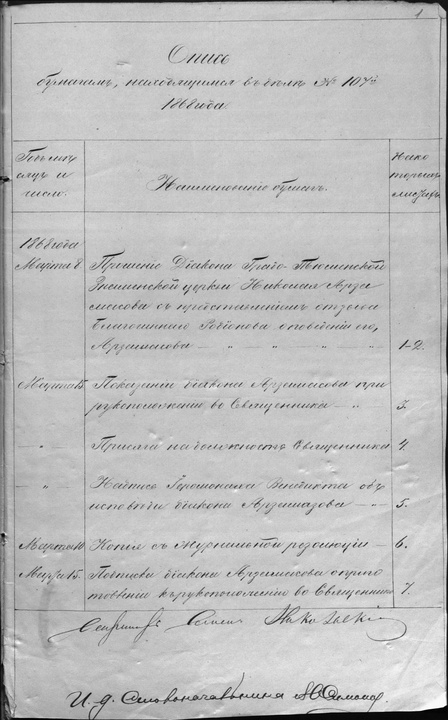 1
Опись
бумагамъ, находящимся въ дѣлѣ № 107й
1868 года
Годъ, мѣ
сяцъ и
число.
Наименованіе бумагъ.
На ко
торыхъ
листахъ.
1868 года
Марта 8
Прошеніе Діакона Градо-Тюменской
Знаменской церкви Николая Арза
масова съ представленіемъ отзыва
благочиннаго о поведеніи его,
Арзамасова — „ — „ — „ — „
1-2.
Марта 15.
Показаніе діакона Арзамасова при
рукоположеніи во Священника — „
3.
„
Присяга на должность Священника
4.
„
Надпись Іеромонаха объ
исповѣди діакона Арзамазова — „
5.
Марта 10.
Копія съ журнальной резолюціи —
6.
Марта 15.
Подписка діакона Арзамасова о приго
товленіи къ рукоположенію во Священника
7.
И. д. Столоначальника